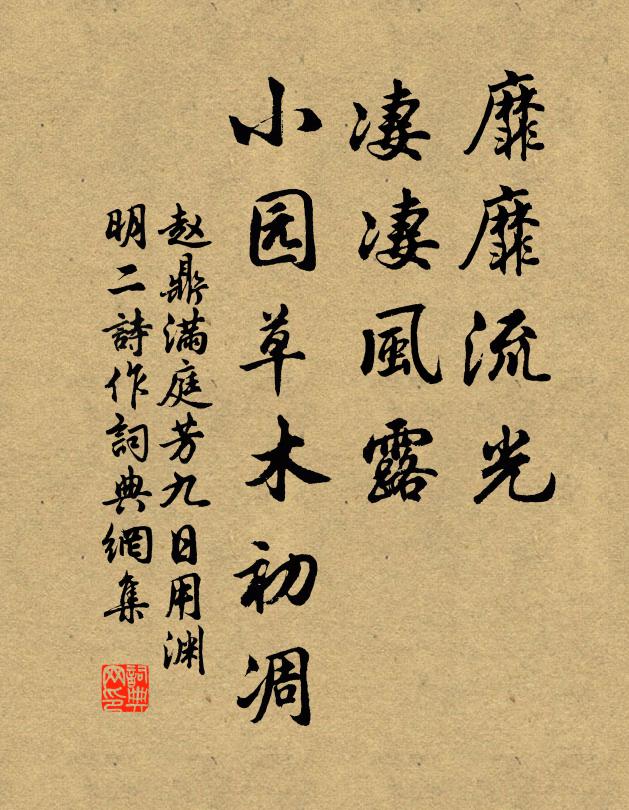 靡靡流光
凄凄風露
小园草木初凋
赵鼎满庭芳九日用渊
明二詩作詞典網集
詞典
网印